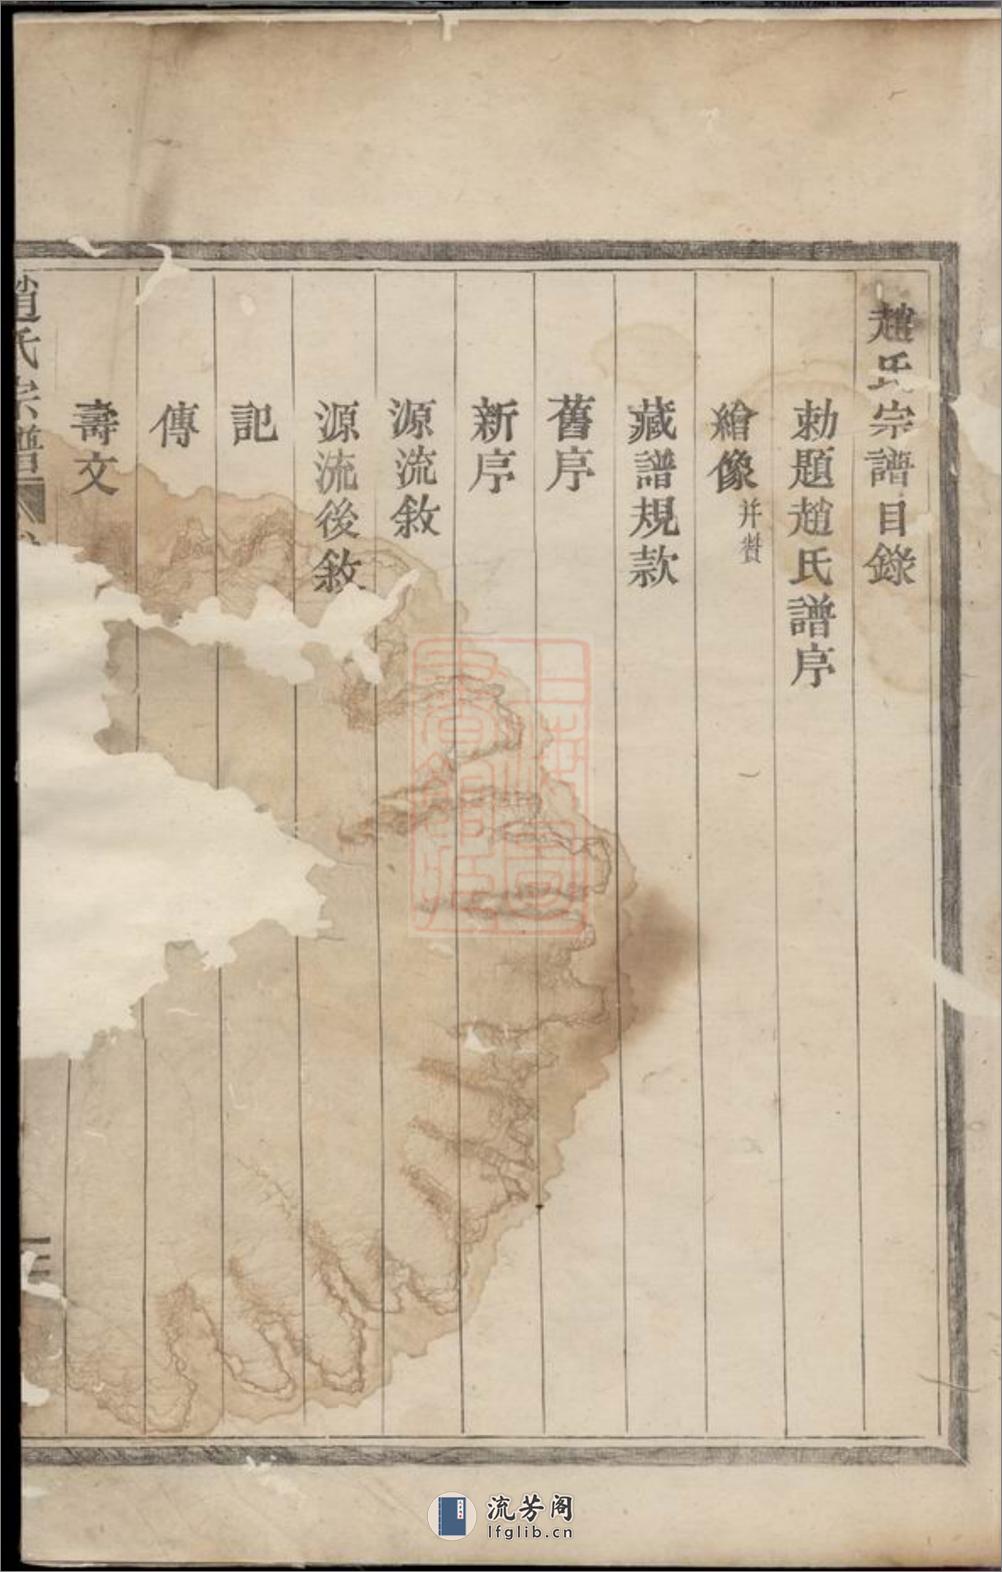 趙氏宗譜目錄
勅題趙氏譜序
繪像并賛
藏譜規款
舊序
新序
源流敘
源流後敘
記
傳
壽文
趙氏宗譜
流芳阁
lfglib.cn